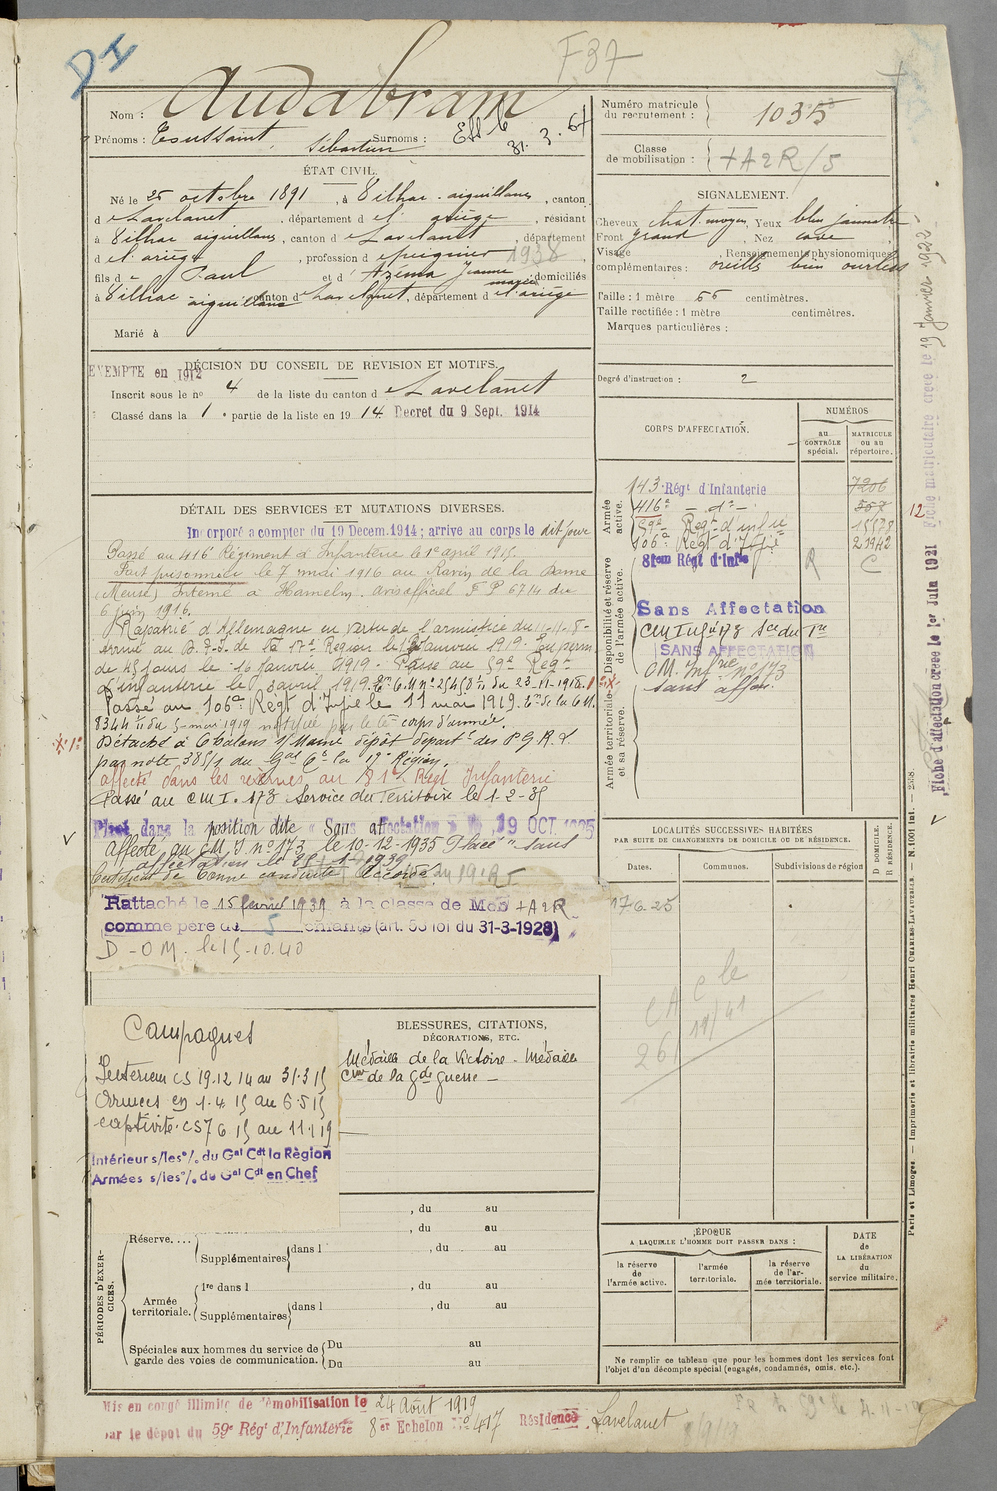 DI
F37
Nom : Audabram
Prénoms : Toussaint, Sébastien Surnoms :
31. 3. 64
ÉTAT CIVIL.
Né le 25 octobre 1891, à Dilhac-aiguillanes, canton
d e Lavelanet, département d el ariège, résidant
à Dilhac aiguillanes, canton d e Lavelanet, département
d el ariège, profession d e peignier 1938
fils d e Paul et d' Azéma Jeanne marie domiciliés
à Dilhac aiguillanes canton d e Lavelanet, département d el'ariège
Marié à
DÉCISION DU CONSEIL DE REVISION ET MOTIFS.
EXEMPTE en 1912
Inscrit sous le n° 4 de la liste du canton d e Lavelanet
Classé dans la 1e partie de la liste en 1914. Decret du 9 Sept. 1914
DÉTAIL DES SERVICES ET MUTATIONS DIVERSES.
Incorporé a compter du 19 Decem. 1914; arrivé au corps le dit jour
Passé au 416e Régiment d'Infanterie le 1er avril 1915.
Fait prisonnier le 7 mai 1916 au Ravin de la Dame
(Meuse) Interné à Hameln. avis officiel F P 6714 du
6 juin 1916.
Rapatrié d'Allemagne en vertu de l'armistice du 11-11-8-
Arrivé au D.I. de la 17e Région le 12 Janvier 1919. En perm
de 45 jours le 16 Janvier 1919. Passé au 59e Regt
d'infanterie le 3 avril 1919. C. M n° 25458 1/11 du 23-11-1918.
Passé au 106e Regt d'Infie le 11 mai 1919. Con de la C.M.
8344 1/11 du 5-mai 1919 notifié par le 6e corps d'armée.
Détaché à Chalons s/Marne dépôt départt des P G R L
par note 385/1 du Gal Ct la 17e Région.
affecté dans les réserves au 81e Regt Infanterie
Passé au CMI. 173 Service du Territoire le 1-2-35
Placé dans la position dite « Sans affectation » le 19 OCT. 1935
Affecté au C.M.I. n° 173 le 10-12-1935 Placé "sans
affectation" le 25-1-1939
Certificat de bonne conduite Accordé
Rattaché le 15 février 1939 à la classe de Mob +A2R
comme père de 5 enfants (art. 58 loi du 31-3-1928)
D-OM. le 15-10.40
Campagnes
Intérieur CS 19.12 14 au 31.3 15
Armées CS 1.4.15 au 6.5 15
captivité. CS 7 6 15 au 11.1 19
Intérieur s/les °/. du Gal Cdt la Règion
Armées s/les °/. du Gal Cdt en Chef
BLESSURES, CITATIONS,
DÉCORATIONS, ETC.
Médaille de la Victoire - Médaille
Cive de la Gde Guerre -
PÉRIODES D'EXERCICES.
, du au
, du au
Réserve....
Supplémentaires dans l , du au
Armée
territoriale.
1re dans l , du au
Supplémentaires dans l , du au
Spéciales aux hommes du service de
garde des voies de communication.
Du au
Du au
Mis en congé illimité de démobilisation le 24 Août 1919
par le dépôt du 59e Régt d'Infanterie 8er Echelon N° 417 Résidence Lavelanet
Numéro matricule
du recrutement : 1035
Classe
de mobilisation : +A2R/5
SIGNALEMENT.
Cheveux chat. moyen, Yeux bleu jaunatre
Front grand, Nez cave
Visage, Renseignements physionomiques
complémentaires : oreille bien ourlées
Taille : 1 mètre 66 centimètres.
Taille rectifiée : 1 mètre centimètres.
Marques particulières :
Degré d'instruction : 2
CORPS D'AFFECTATION.
NUMÉROS
au
CONTRÔLE
spécial.
MATRICULE
ou au
répertoire.
Armée
active.
143e Régt d'Infanterie 7206
416e - d° - 557
59e Regt d'infie 15578
106e Regt d'Infie
Disponibilité et réserve
de l'armée active.
81em Régt d'Infie R C
Sans Affectation
CMI n° 173 Sce du Tre
SANS AFFECTATION
Armée territoriale
et sa réserve.
OM. Infrie n° 173
Sans affon.
LOCALITÉS SUCCESSIVES HABITÉES
PAR SUITE DE CHANGEMENTS DE DOMICILE OU DE RÉSIDENCE.
D DOMICILE.
R RÉSIDENCE.
Dates. Communes. Subdivisions de région
17 6 25
ÉPOQUE
A LAQUELLE L'HOMME DOIT PASSER DANS :
la réserve
de
l'armée active.
l'armée
territoriale.
la réserve
de l'armée territoriale.
DATE
de
LA LIBÉRATION
du
service militaire.
Ne remplir ce tableau que pour les hommes dont les services font
l'objet d'un décompte spécial (engagés, condamnés, omis, etc.).
Fiche matriculaire créée le 19 Janvier 1922
Fiche d'affectation créée le 1er Juin 1921
Paris et Limoges. — Imprimerie et librairie militaires Henri CHARLES-LAVAUZELLE. N. 1001 Int. — 2538.